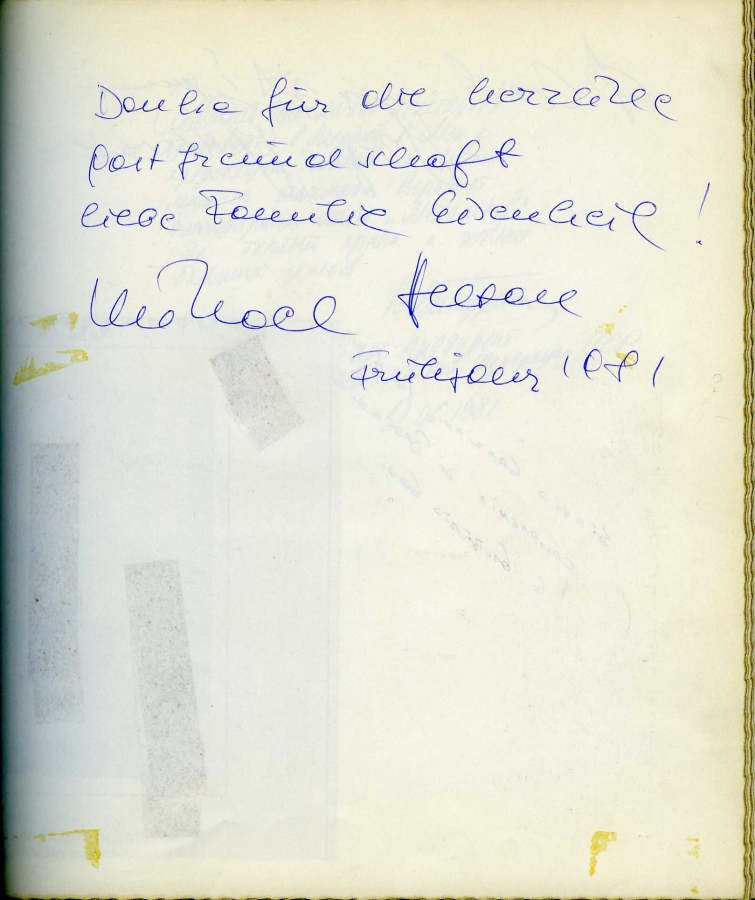 Danke für die herzliche
Gastfreundschaft
liebe Familie Eisenheil !
Michael
Frühjahr 1981